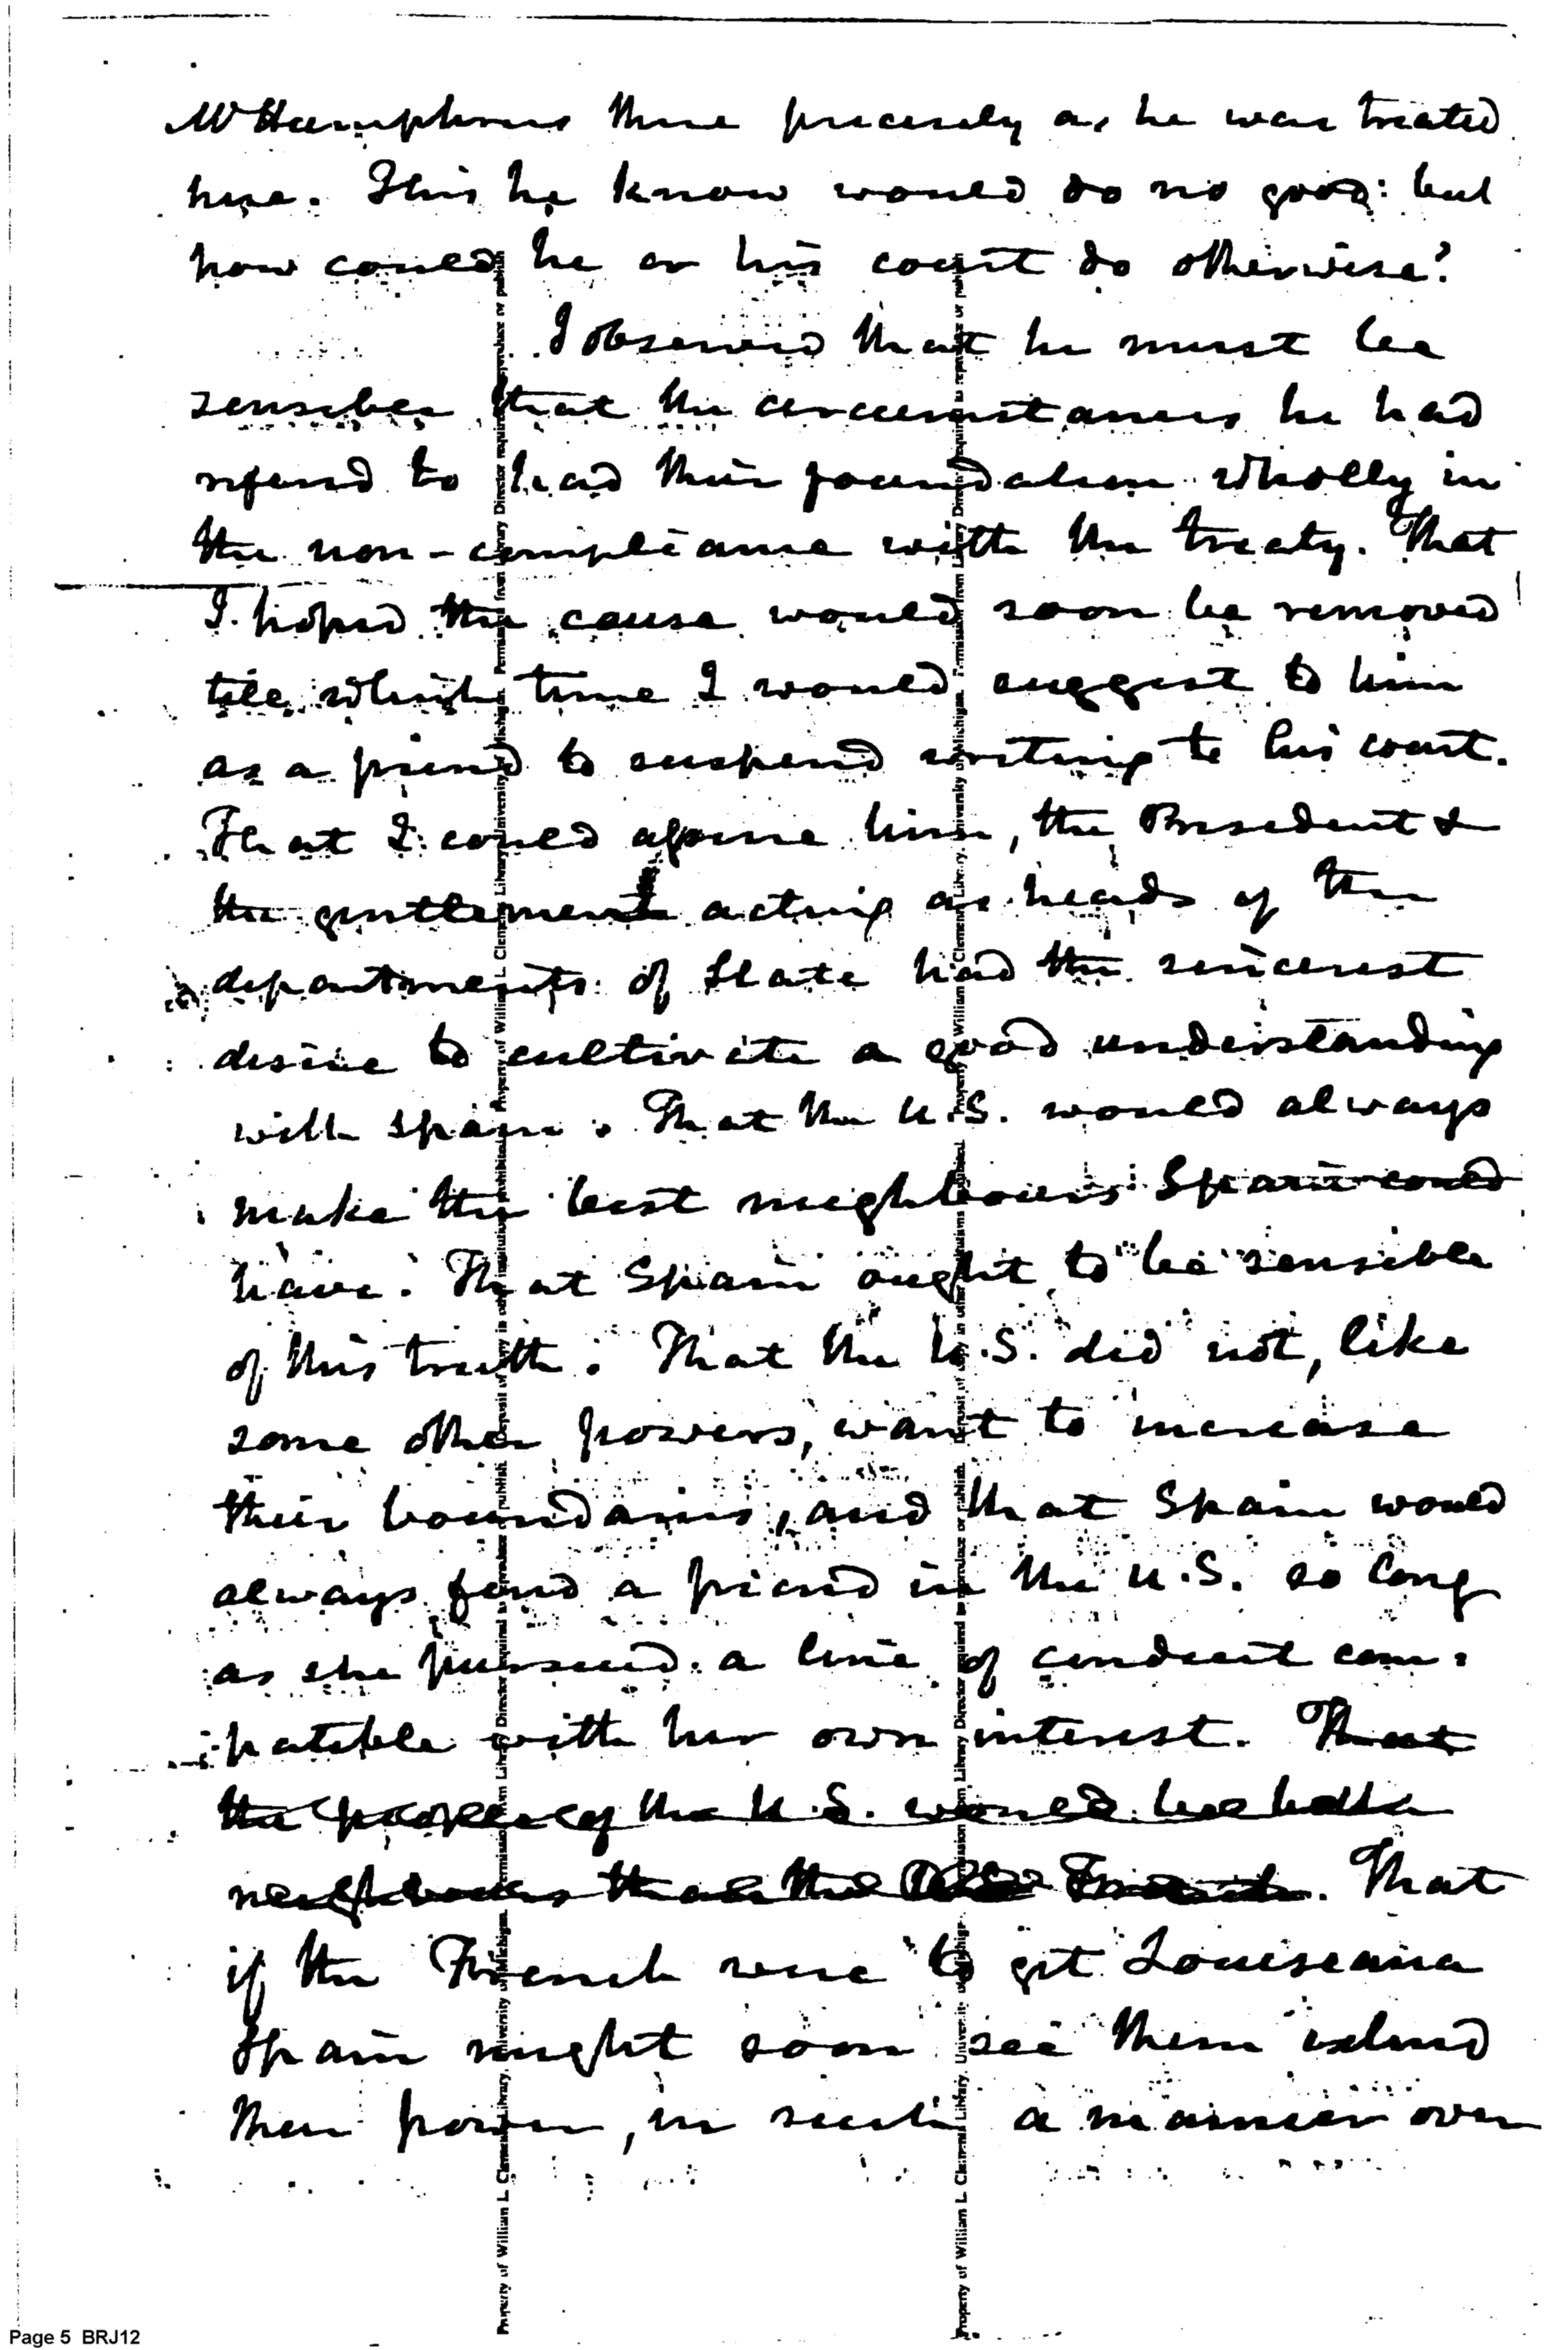 Mr Humphreys there precisely as he was treated
here. This he know would do no good: but
how could he or his court do otherwise?
I observed that he must be
sensible that the circumstances he had
refered to had their foundation wholly in
the non-compliance with the treaty. That
I hoped the cause would soon be removed
till which time I would suggest to him
as a friend to suspend writing to his court.
That I could assure him, the President &
the gentlemen acting as heads of the
departments of State had the sincerest
desire to cultivate a good understanding
with Spain. That the U.S. would always
make the best neighbours Spain could
have. That Spain ought to be sensible
of this truth. That the U.S. did not, like
some other powers, want to increase
their boundaries, and that Spain would
always find a friend in the U.S. so long
as she pursued a line of conduct com:
patible with her own interest. That
the people of the U.S. would be better
neighbours than the French. That
if the French were to get Louiseana
Spain might soon see them extend
their power, in such a manner over
Property of William L. Clements Library, University of Michigan. Permission from Library Director required to reproduce or publish.
Page 5 BRJ12